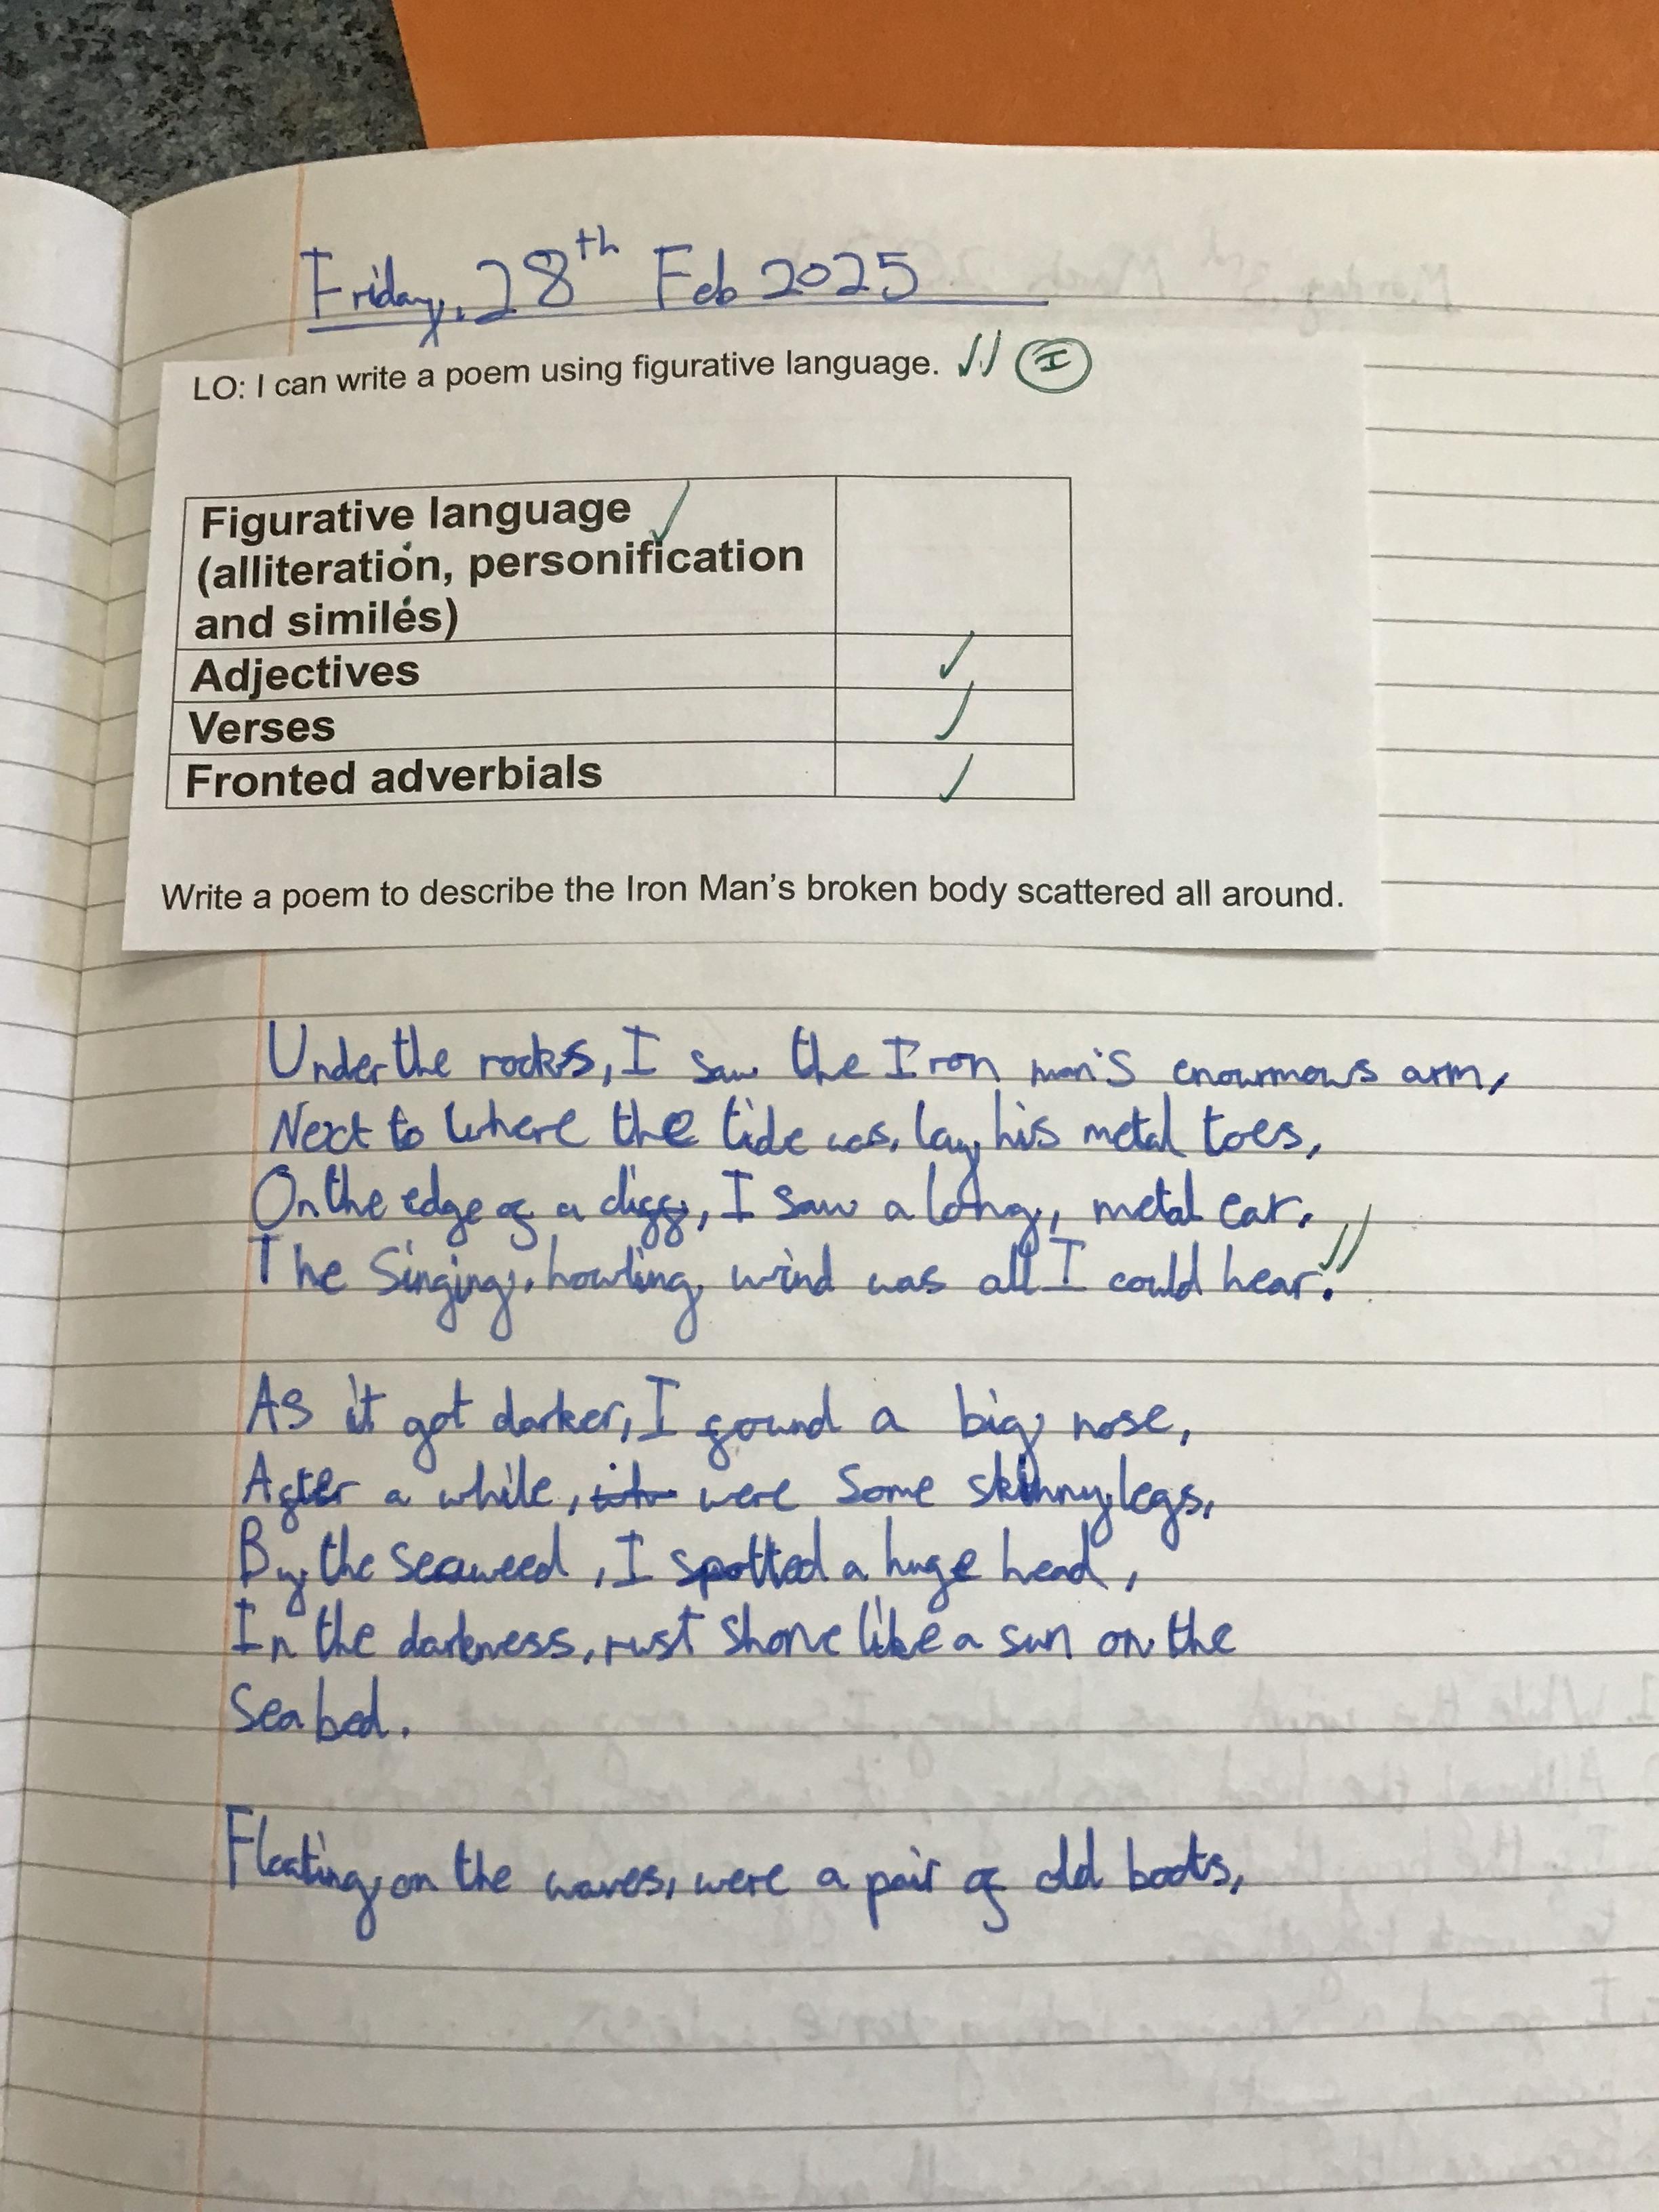 Friday, 28th Feb 2025
LO: I can write a poem using figurative language.
I
Figurative language
(alliteration, personification
and similes)
Adjectives
Verses
Fronted adverbials
Write a poem to describe the Iron Man's broken body scattered all around.
Under the rocks, I saw the Iron man's enourmous arm,
Next to where the tide was, lay his metal toes,
On the edge of a cliff, I saw a long, metal ear.
The Singing, howling wind was all I could hear.
As it got darker, I found a big nose,
After a while, were some skinny legs,
By the seaweed, I spotted a huge head,
In the darkness, rust shone like a sun on the
Sea bed.
Floating on the waves, were a pair of old boots,